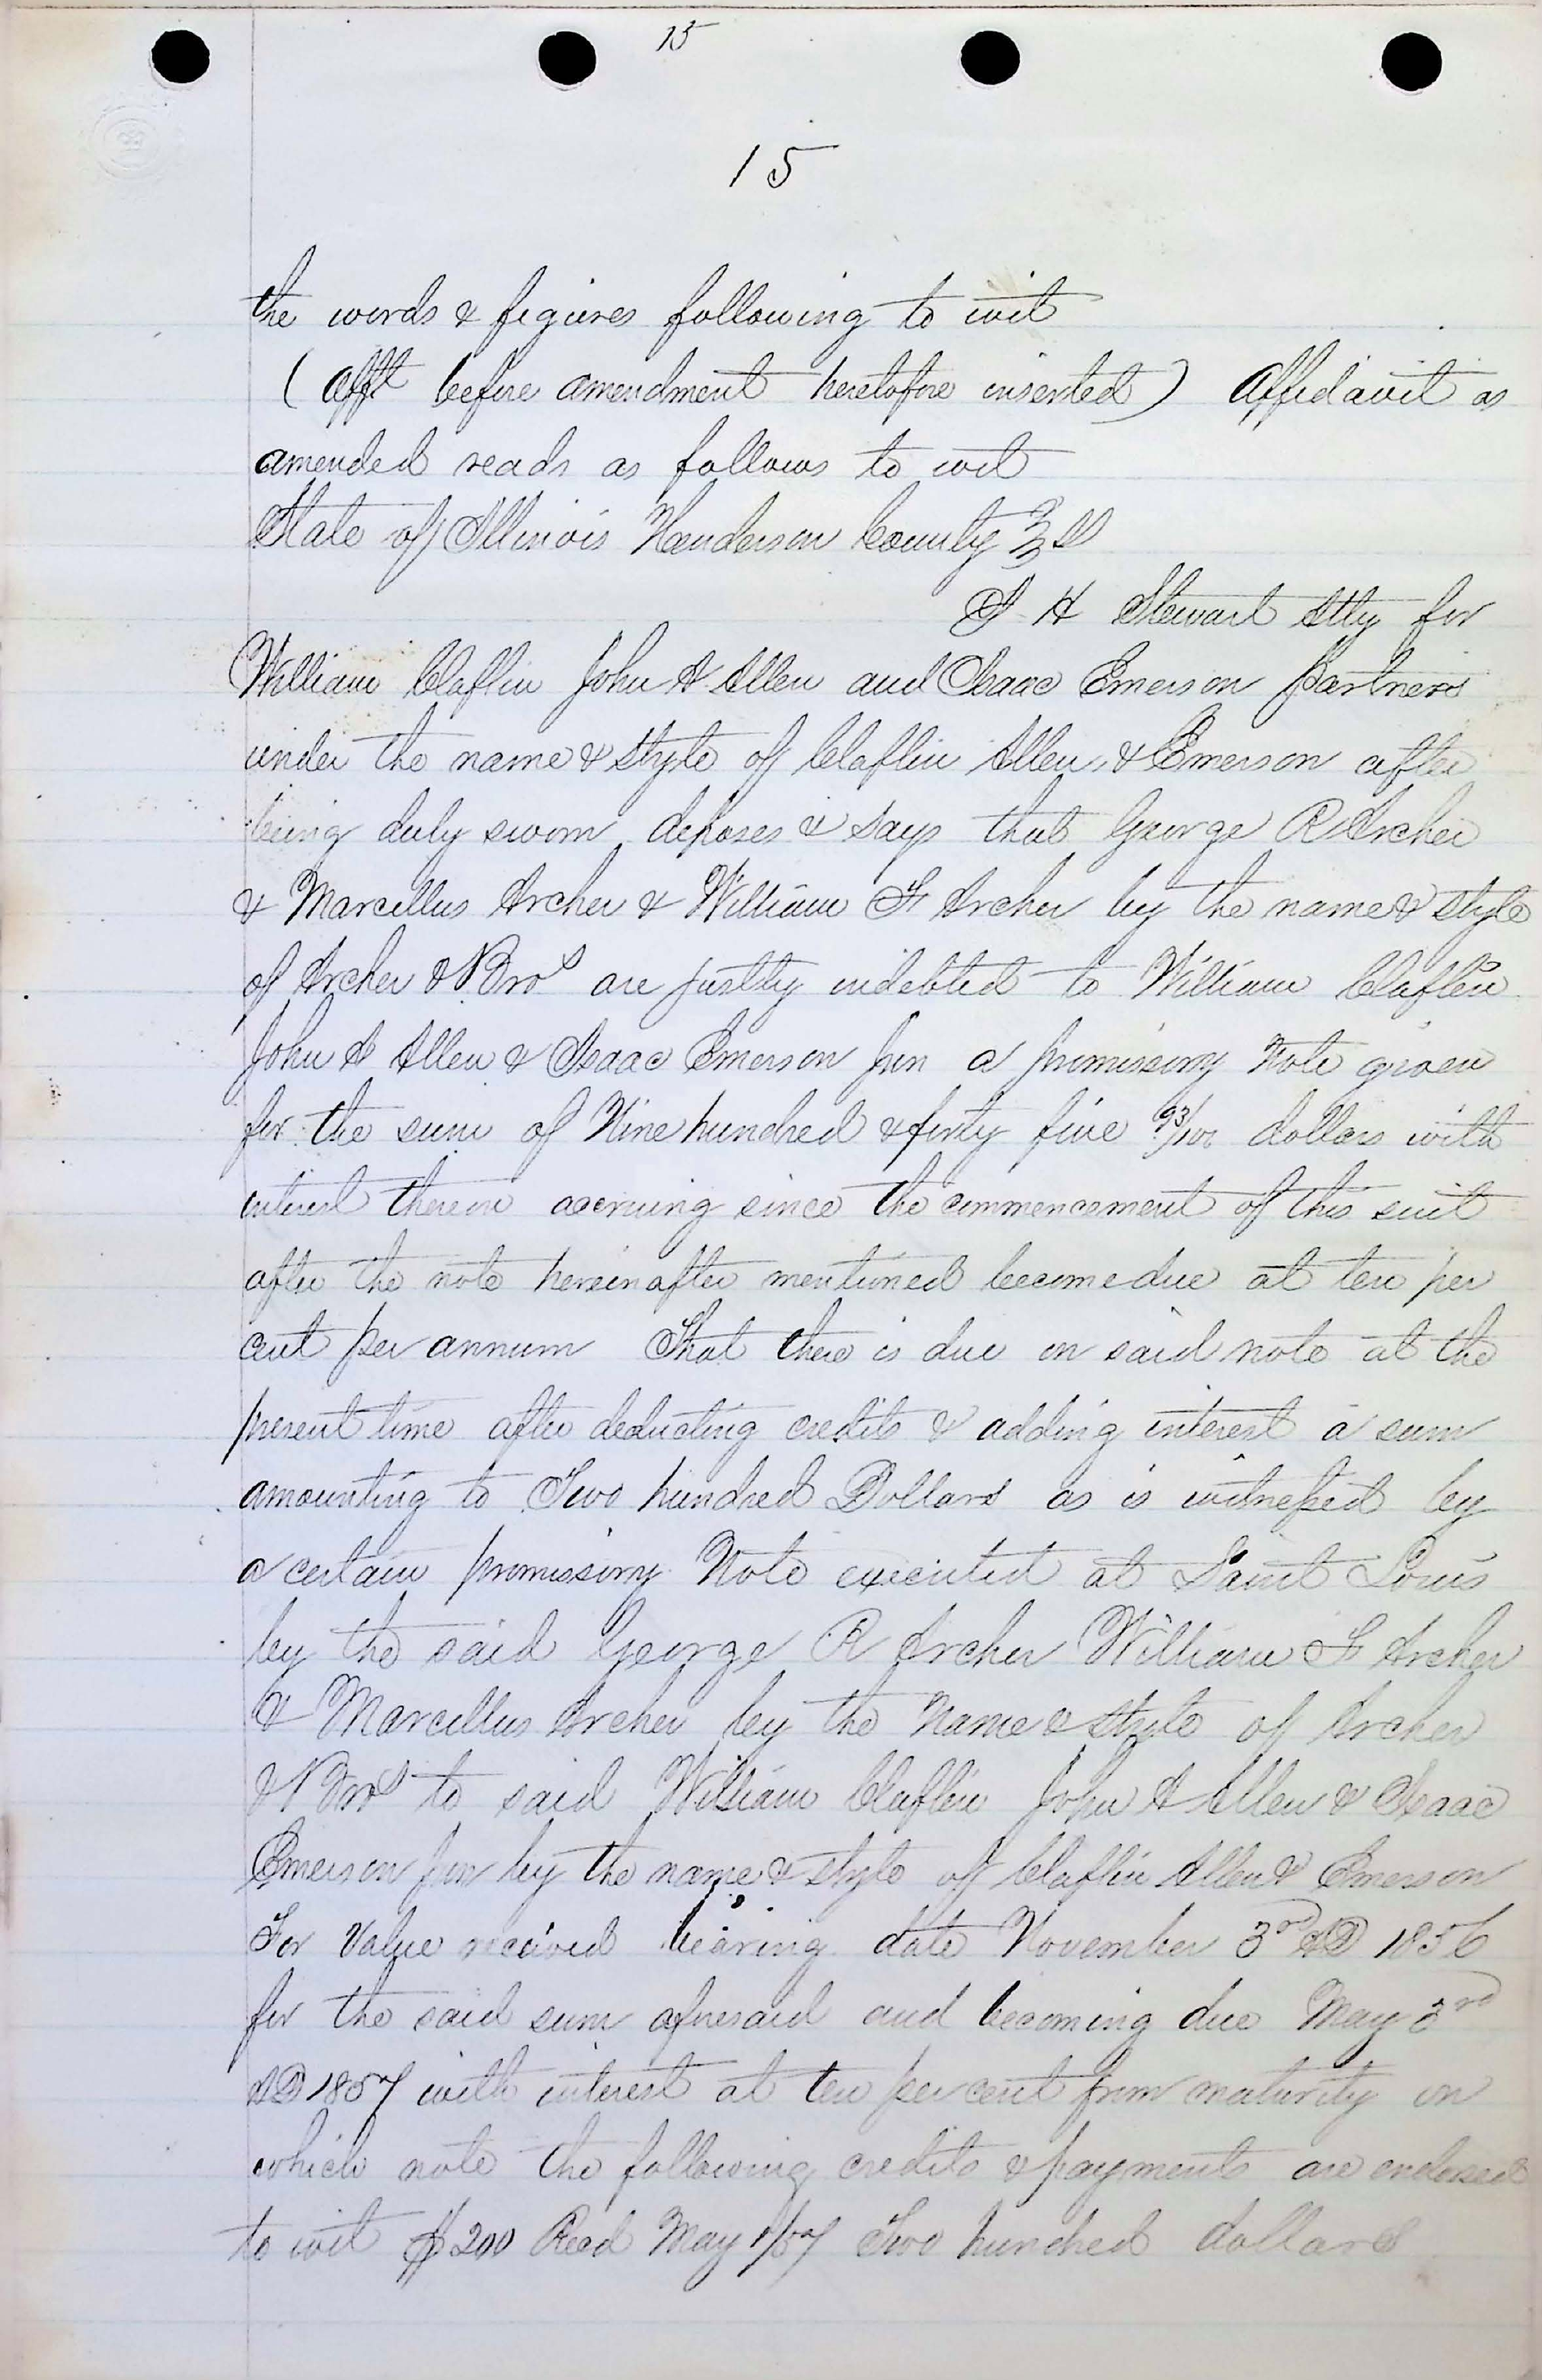 15
15
the words & figures following to wit
( Afft before amendment heretofore inserted ) Affidavit as
amended reads as follows to wit
State of Illinois Henderson County } SS
H Stewart Atty for
William Claflin John A Allen and Isaac Emerson partners
under the name & style of Claflin Allen & Emerson after
being duly sworn deposes & says that George R Archer
& Marcellus Archer & William F Archer by the name & style
of Archer & Bros are justly indebted to William Claflin
John A Allen & Isaac Emerson Jun a promissory Note given
for the sum of Nine hundred & forty five 93/100 dollars with
interest thereon accruing since the commencement of this suit
after the note hereinafter mentioned become due at ten per
cent per annum That there is due on said note at the
present time after deducting credits & adding interest a sum
amounting to Two hundred Dollars as is witnessed by
a certain promissory Note executed at Saint Louis
by the said George R Archer William F Archer
& Marcellus Archer by the Name & style of Archer
& Bros to said William Claflin John A Allen & Isaac
Emerson Jun by the name & style of Claflin Allen & Emerson
For Value received bearing date November 3rd AD 1856
for the said sum aforesaid and becoming due May 3rd
AD 1857 with interest at ten per cent from maturity on
which note the following credits & payments are endorsed
to wit $200 Recd May 1/57 Two hundred dollars